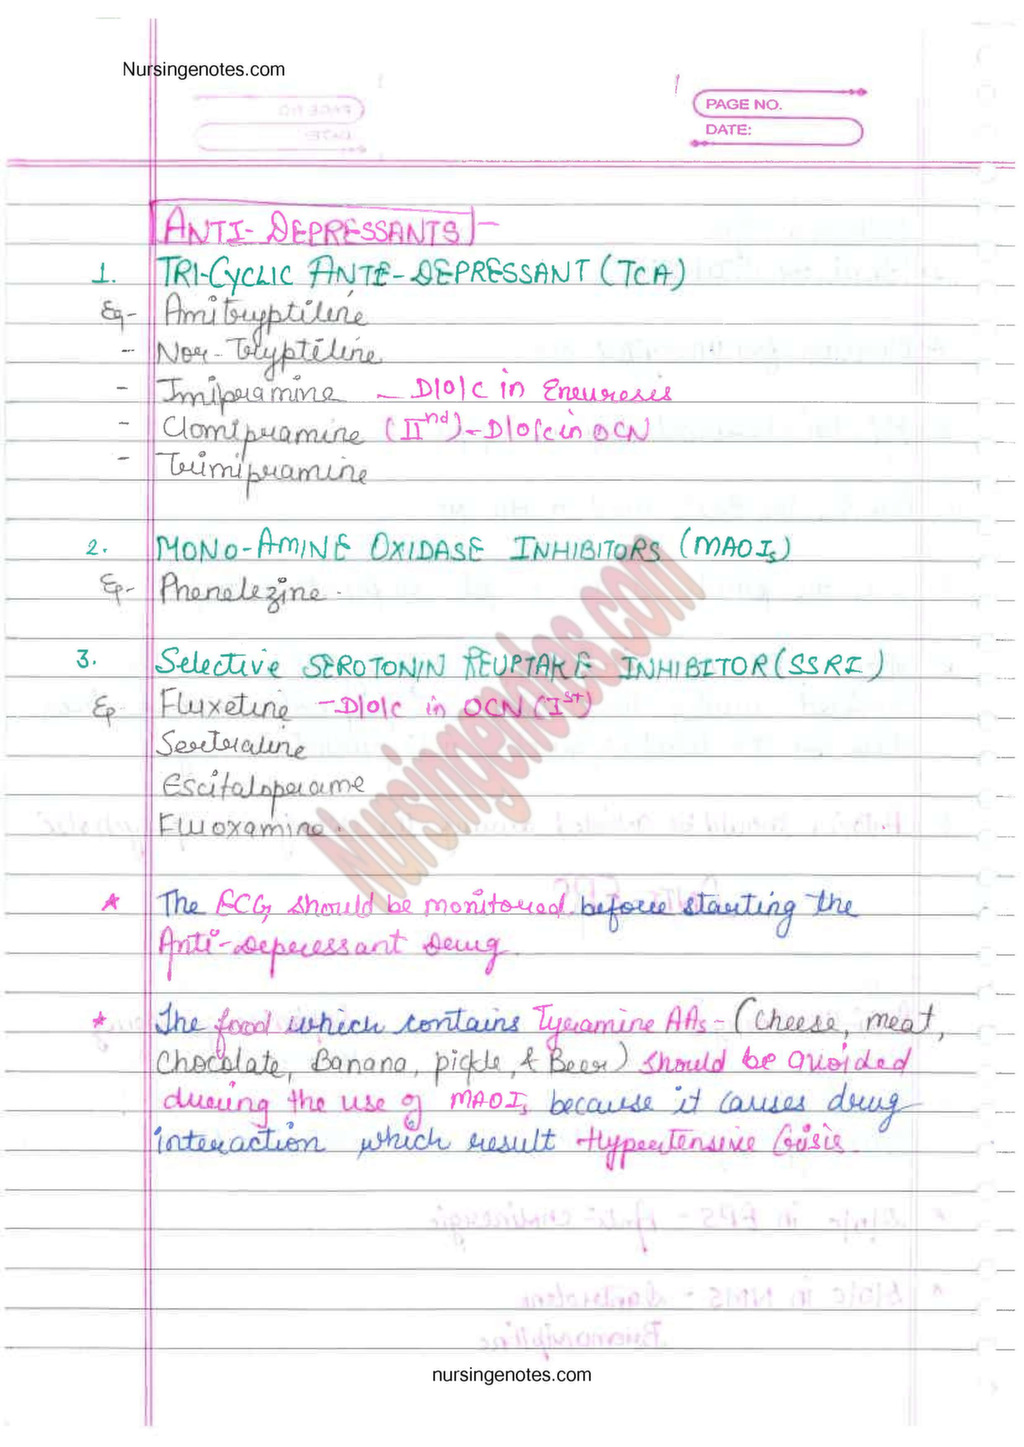 Nursingenotes.com
PAGE NO.
DATE:
ANTI-DEPRESSANTS -
1. TRI-CYCLIC ANTI-DEPRESSANT (TCA)
Eg- Amitryptiline
- Nor-Tryptiline
- Imipramine - D/o/c in Eneuresis
- Clomipramine (IInd) - D/o/c in OCN
- Trimipramine
2. MONO-AMINE OXIDASE INHIBITORS (MAOIs)
Eg- Phenelezine.
3. Selective SEROTONIN REUPTAKE INHIBITOR (SSRI)
Eg Fluxetine - D/o/c in OCN (Ist)
Sertraline
Escitaloprame
Fluoxamine.
Nursingenotes.com
* The ECG should be monitored before starting the
Anti-Depressant Drug.
* The food which contains Tyramine AAs - (Cheese, meat,
Chocolate, Banana, pickle, & Beer) should be avoided
during the use of MAOIs because it causes drug
interaction which result Hypertensive Crisis.
nursingenotes.com